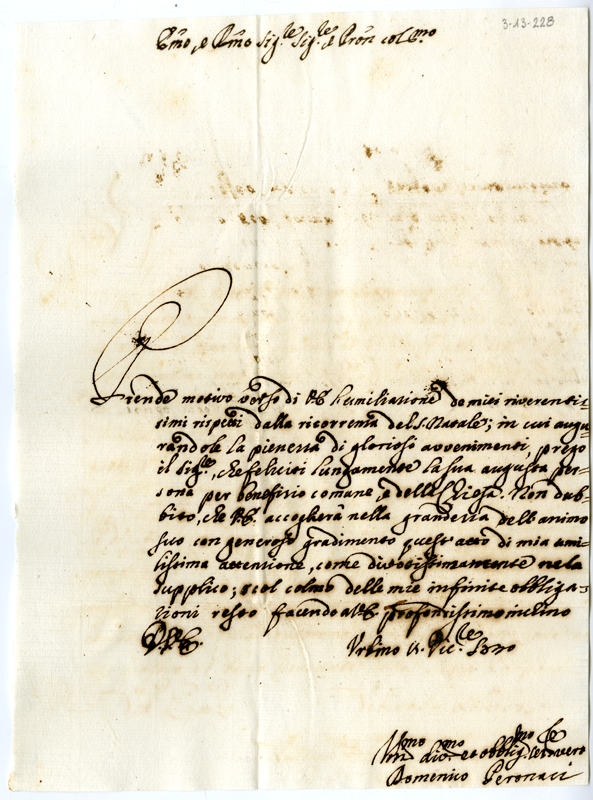 3-13-228
Emo, e Rmo Sig.re Sig.re e Pron col.mo
Prende motivo verso di V.E. l'umiliazione de miei riverentis=
simi rispetti dalla ricorrenza del S. Natale; in cui augu=
randole la pienezza di gloriosi avvenimenti, prego
il Sig.re, che feliciti lungamente la sua augusta per=
sona per benefizio comune, e della Chiesa. Non dub=
bito, che V.E. accoglierà nella grandezza dell'animo
suo con generoso gradimento quest'atto di mia umi=
lissima attenzione, come divotissimamente ne la
supplico; e col colmo delle mie infinite obbliga=
zioni resto facendo a V.E. profondissimo inchino
D.V.E.
Urbino
Umo divmo et obbligmo
Domenico Peronaci